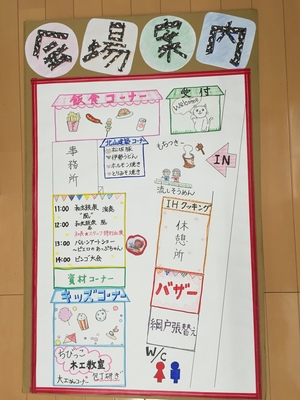 会場案内
飲食コーナー
受付
Welcome
事務所
北山建築コーナー
松坂豚
伊勢うどん
ホルモン焼き
とりみそ焼き
もちつき
IN
流しそうめん
11:00 和太鼓
演奏
12:00 和太鼓
13:00 バルーンアートショー
14:00 ビンゴ大会
IHクッキング
休憩所
資材コーナー
バザー
キッズコーナー
網戸張替え
ちびっこ
木工教室
大工さんコーナー
包丁研ぎ
W/C